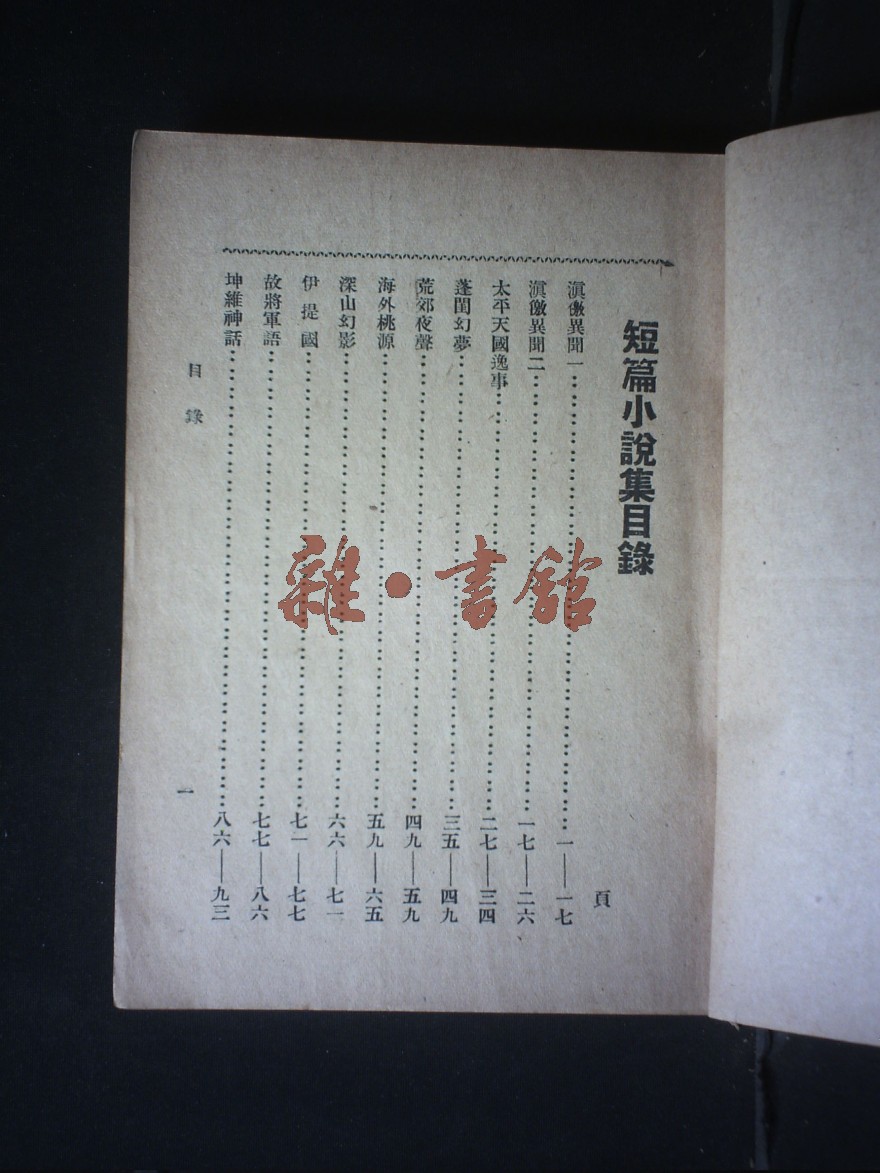 短篇小說集目錄
頁
滇儌異聞一……一——一七
滇儌異聞二……一七——二六
太平天國逸事……二七——三四
蓬閨幻夢……三五——四九
荒郊夜聲……四九——五九
海外桃源……五九——六五
深山幻影……六六——七一
伊提國……七一——七七
故將軍語……七七——八六
坤維神話……八六——九三
目錄
一
雜·書館